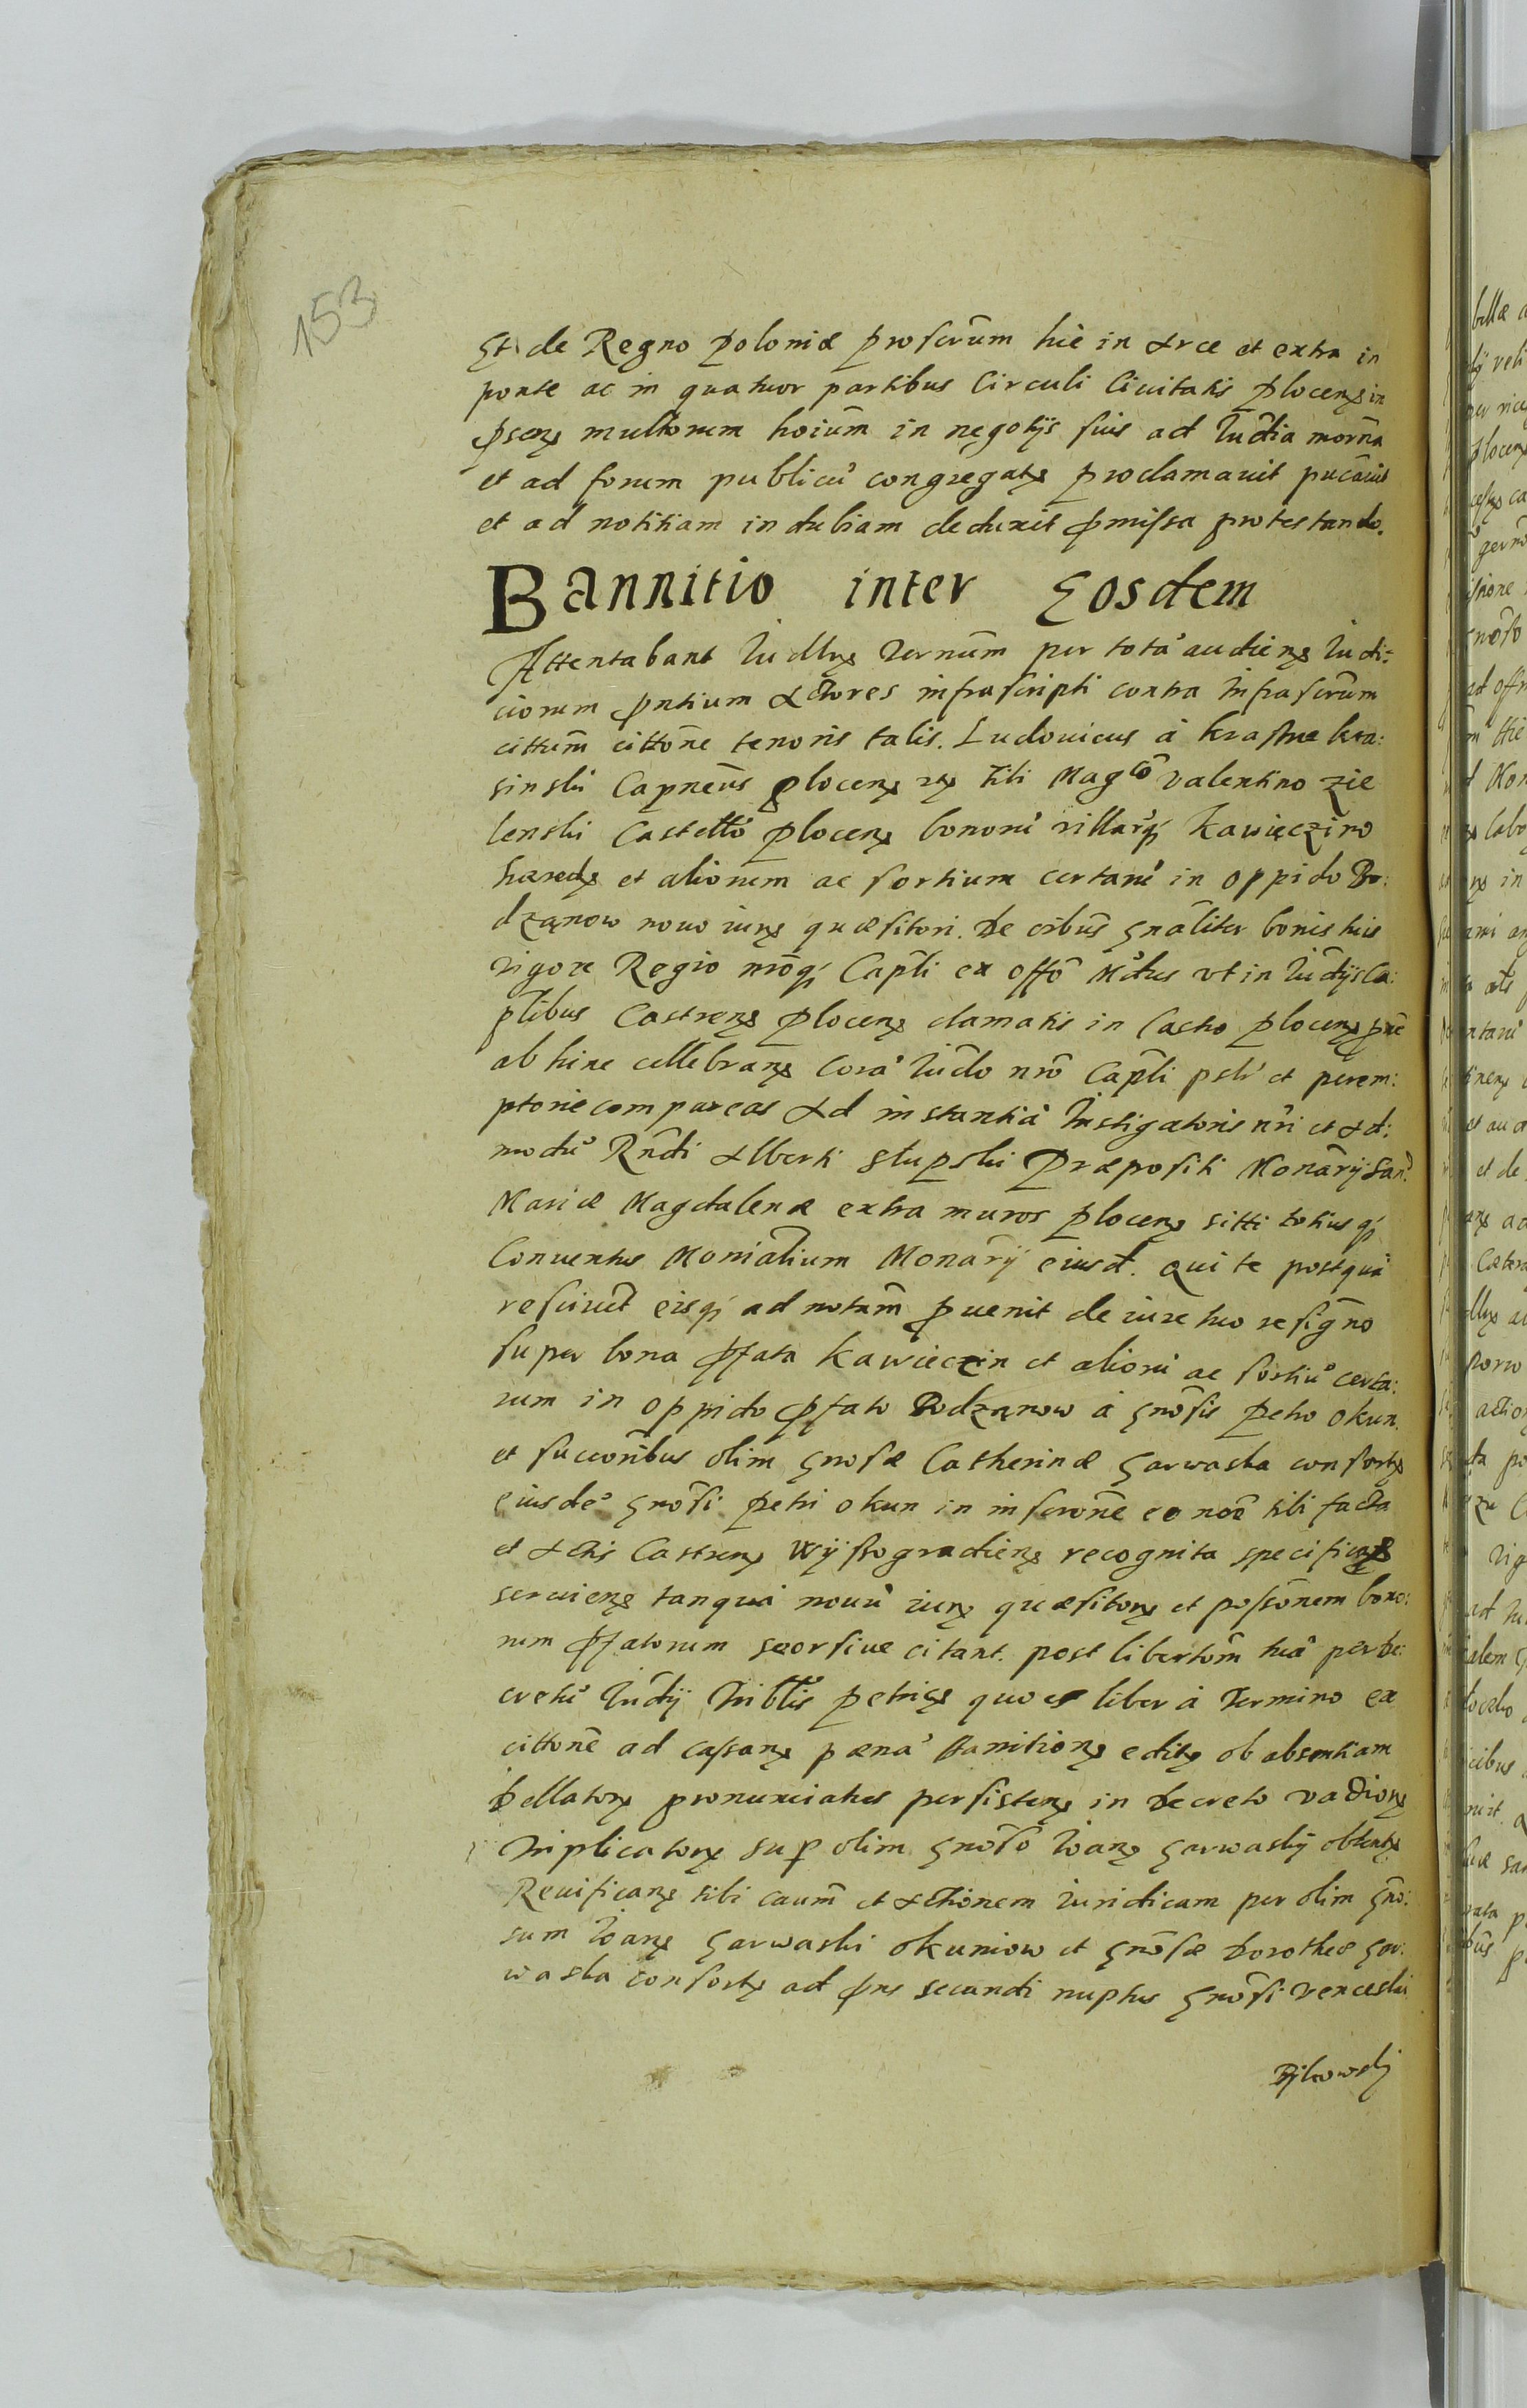 153
Et de Regno Poloniæ proscrum hic in Arce et extra in
ponte ac in quatuor partibus Circuli Ciuitatis plocens in
psens multorum hoium in negotijs suis ad Iudia morna
et ad forum publicu congregats proclamauit pucauit
et ad notitiam indubiam deduxit pmissa protestando.
Bannitio inter Eosdem
Attentabant Iudlr Vernum per totá audiens Iudi:
ciorum pntium Actores infrascripti contra Infrascrum
cittum cittone tenoris talis. Ludouicus á krasne kra:
sinski Capneus plocens Tibi Magco Valentino zie
lenski Castello plocens bonoru villarq kawięczino
hæreds et aliorum ac sortium certaru in oppido Bo:
dzanow nouo iuris quæsitori. De oibus gnaliter bonis tuis
rigore Regio nroq Capli ex offo Mdtus vt in Iudijs Ca:
plibus Castrens plocens clamatis in Castro plocens
ab hinc cellebrans Corá Iudo nro Capli pslr et perem:
ptorie compareas Ad instantiá Instigatoris nri et Ad:
modu Rndi Alberti Słupski Præpositi Monarij San:
Mariæ Magdalenæ extra muros plocens sitti totiusq
Conuentus Monialium Monarij eiusd. Qui te postquá
resciuit eisq ad notam puenit de iure tuo resigno
super bona pfata kawieczin et alioru ac sortiu certa:
rum in oppido pfato Bodzanow á gnosis Petro okun
et succoribus olim gnosæ Catherinæ garwaska consorts
eiusde gnosi Petri okun in inscrone eo noe tibi facta
et Actis Castrens Wijssogradiens recognita specificats
seruiens tanquá nouu iuris quæsitors et possonem bono:
rum pfatorum seorsiue citant. post libertom tuá per De:
cretu Iudij Tribtis Petrics quo es liber á Termino ex
cittone ad cassans pæná bannitions edits ob absentiam
Dellators pronunciatus persistens in Decreto vadions
Triplicators sup olim gnoso Ioans garwaskj obtents
Reuificans tibi caum et Actionem iuridicam per olim gno:
sum Ioans garwaski okuniow et gnosæ Dorotheæ gar:
waska consorts ad pns secundi nuptus gnosi venceslai
Bijkowskj